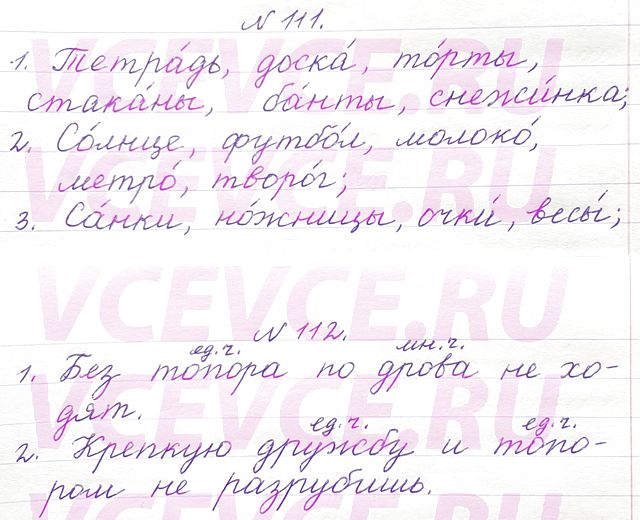 N 111.
1. Тетра́дь, доска́, то́рты,
стака́ны, ба́нты, снежи́нка;
2. Со́лнце, футбо́л, молоко́,
метро́, творо́г;
3. Са́нки, но́жницы, очки́, весы́;
N 112.
ед.ч. мн.ч.
1. Без топора по дрова не хо-
дят.
ед.ч. ед.ч.
2. Крепкую дружбу и топо-
ром не разрубишь.
VCEVCE.RU
VCEVCE.RU
VCEVCE.RU
VCEVCE.RU